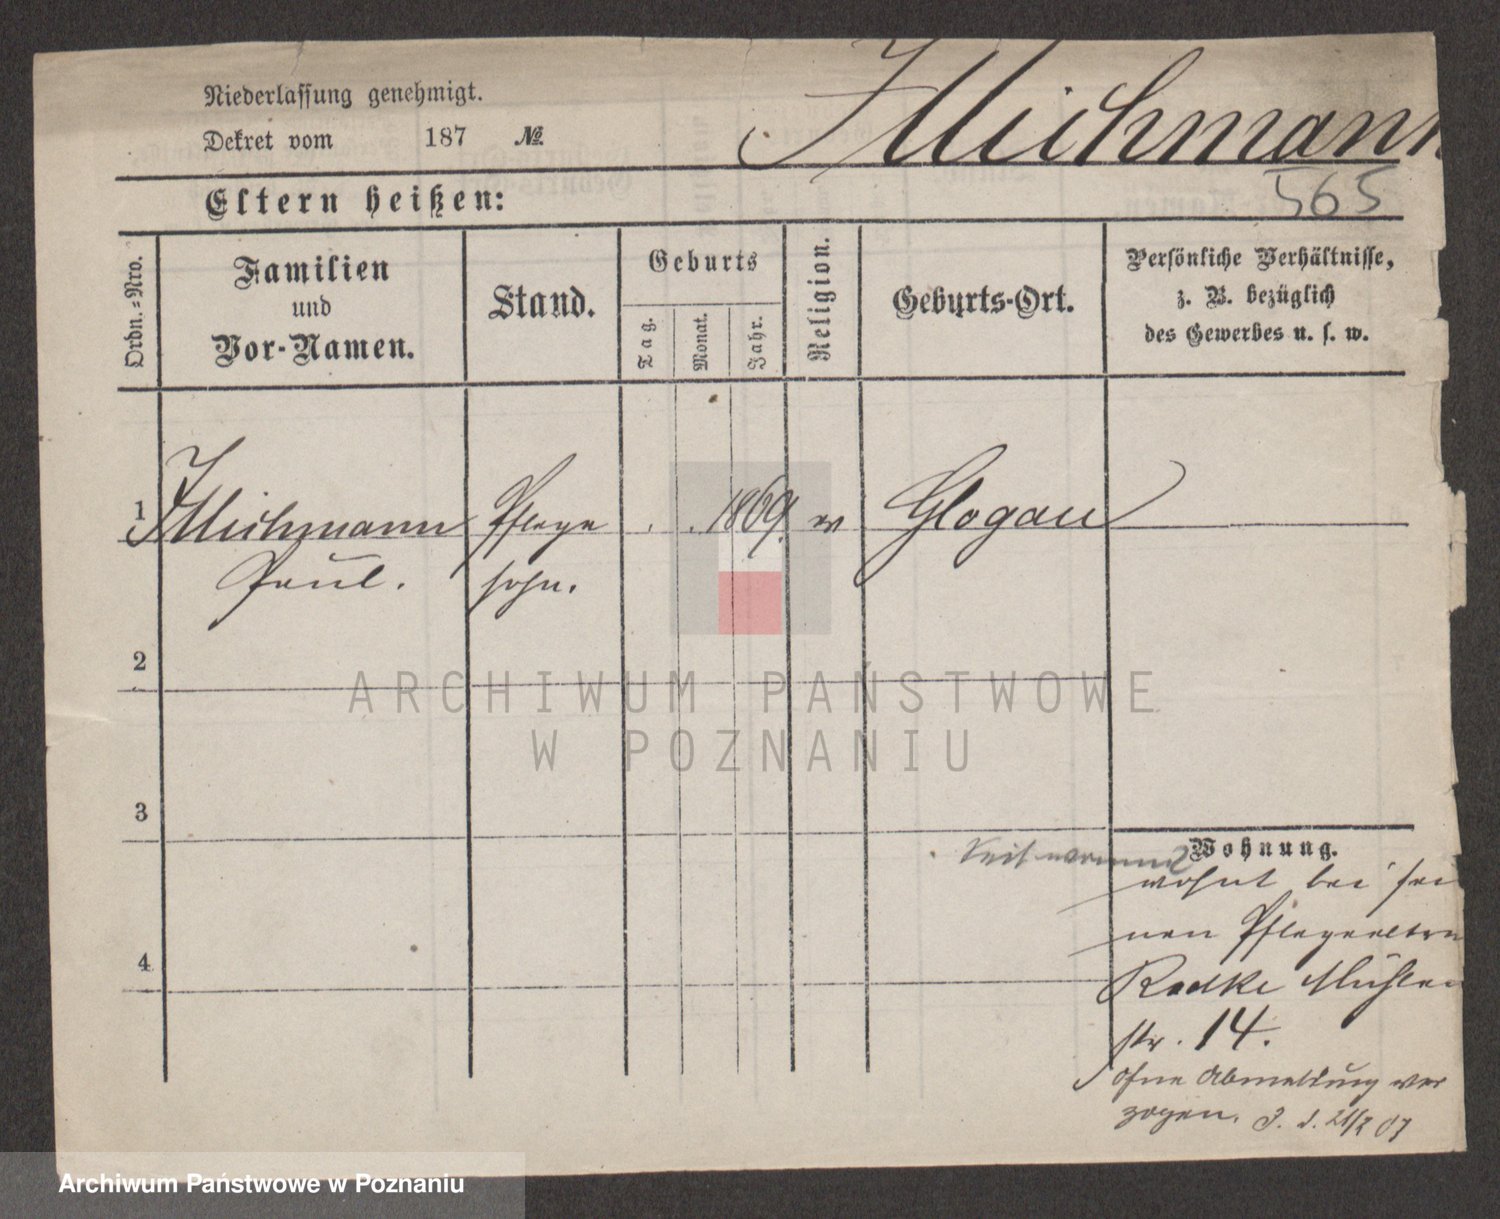 Niederlassung genehmigt.
Dekret vom 187 №
Illichmann
565
Eltern heißen:
Ordn.-Nro.
Familien
und
Vor-Namen.
Stand.
Geburts
Tag.
Monat.
Jahr.
Religion.
Geburts-Ort.
Persönliche Verhältnisse,
z. B. bezüglich
des Gewerbes u. s. w.
1
Illichmann Pflege . . 1869. ev Glogau
Paul. sohn.
2
3
4
Wohnung.
wohnt bei sei
nen Pflegeeltern
Radke Mühlen
str. 14.
ohne Abmeldung ver
zogen.
ARCHIWUM PAŃSTWOWE
W POZNANIU
Archiwum Państwowe w Poznaniu